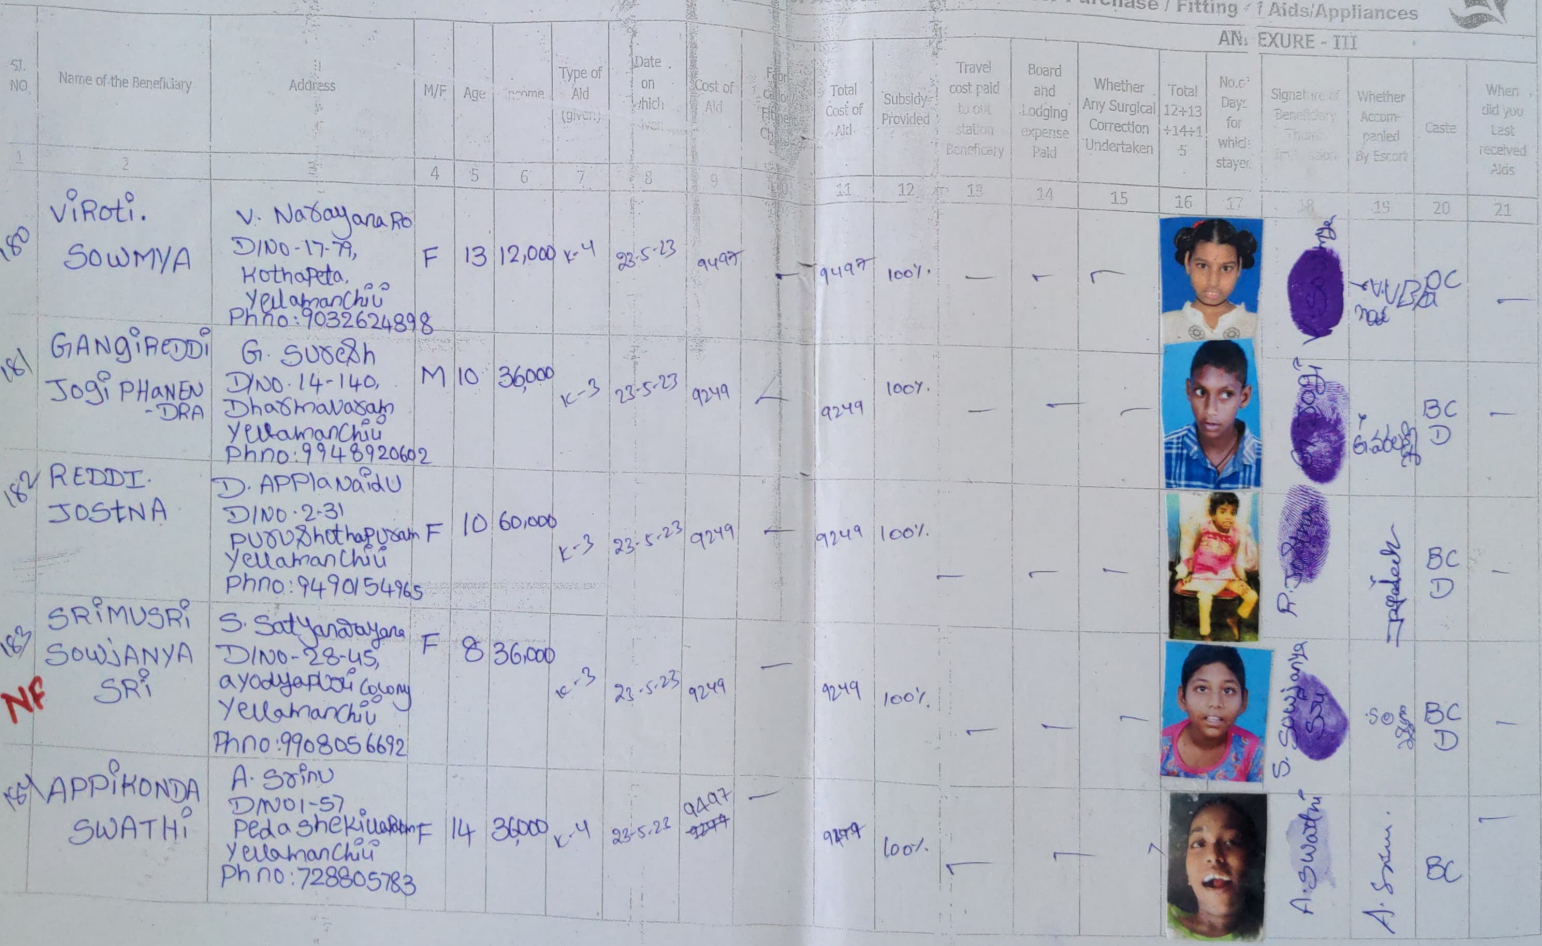 Purchase / Fitting of Aids/Appliances
ANNEXURE - III
Sl. NO. Name of the Beneficiary Address M/F Age Income Type of Aid (given) Date on which Cost of Aid Total Cost of Aid Subsidy Provided Travel cost paid to out station Beneficiary Board and Lodging expense Paid Whether Any Surgical Correction Undertaken Total 12+13 +14+1 5 No.of Days for which stayed Signature of Beneficiary Whether Accom- panied By Escort Caste When did you Last received Aids
1 2 3 4 5 6 7 8 9 10 11 12 13 14 15 16 17 18 19 20 21
180 ViRoti. SOWMYA
V. Narayana Ro
D/NO-17-79,
Kothapeta,
Yellamanchili
Phno:9032624898
F 13 12,000 K-4 23-5-23 9497 - 9497 100% - - - OC -
181 GANGiREDDi
JOgi PHANEN
-DRA
G. Suresh
D/NO.14-140,
Dharmavaram
Yellamanchili
Phno:9948920602
M 10 36,000 K-3 23-5-23 9249 - 9249 100% - - - G. Jogi BC D -
182 REDDI.
JOStNA
D. APPlaNaidu
D/NO.2-31
Purushothapuram
Yellamanchili
Phno:9490154965
F 10 60,000 K-3 23-5-23 9249 - 9249 100% - - - R. Jostna BC D -
183 SRiMUSRi
SOWJANYA
SRi
NF
S. Satyanarayana
D/NO-28-45,
ayodyapuri Colony
Yellamanchili
Phno:9908056692
F 8 36,000 K-3 23-5-23 9249 - 9249 100% - - - S. Sowjanya Sri BC D -
184 APPiKONDA
SWATHi
A. Srinu
D/NO1-57
Yellamanchili
Phno:728805783
F 14 36000 K-4 23-5-23 9497 9249 - 100% - - A. Swathi A. Srinu. BC